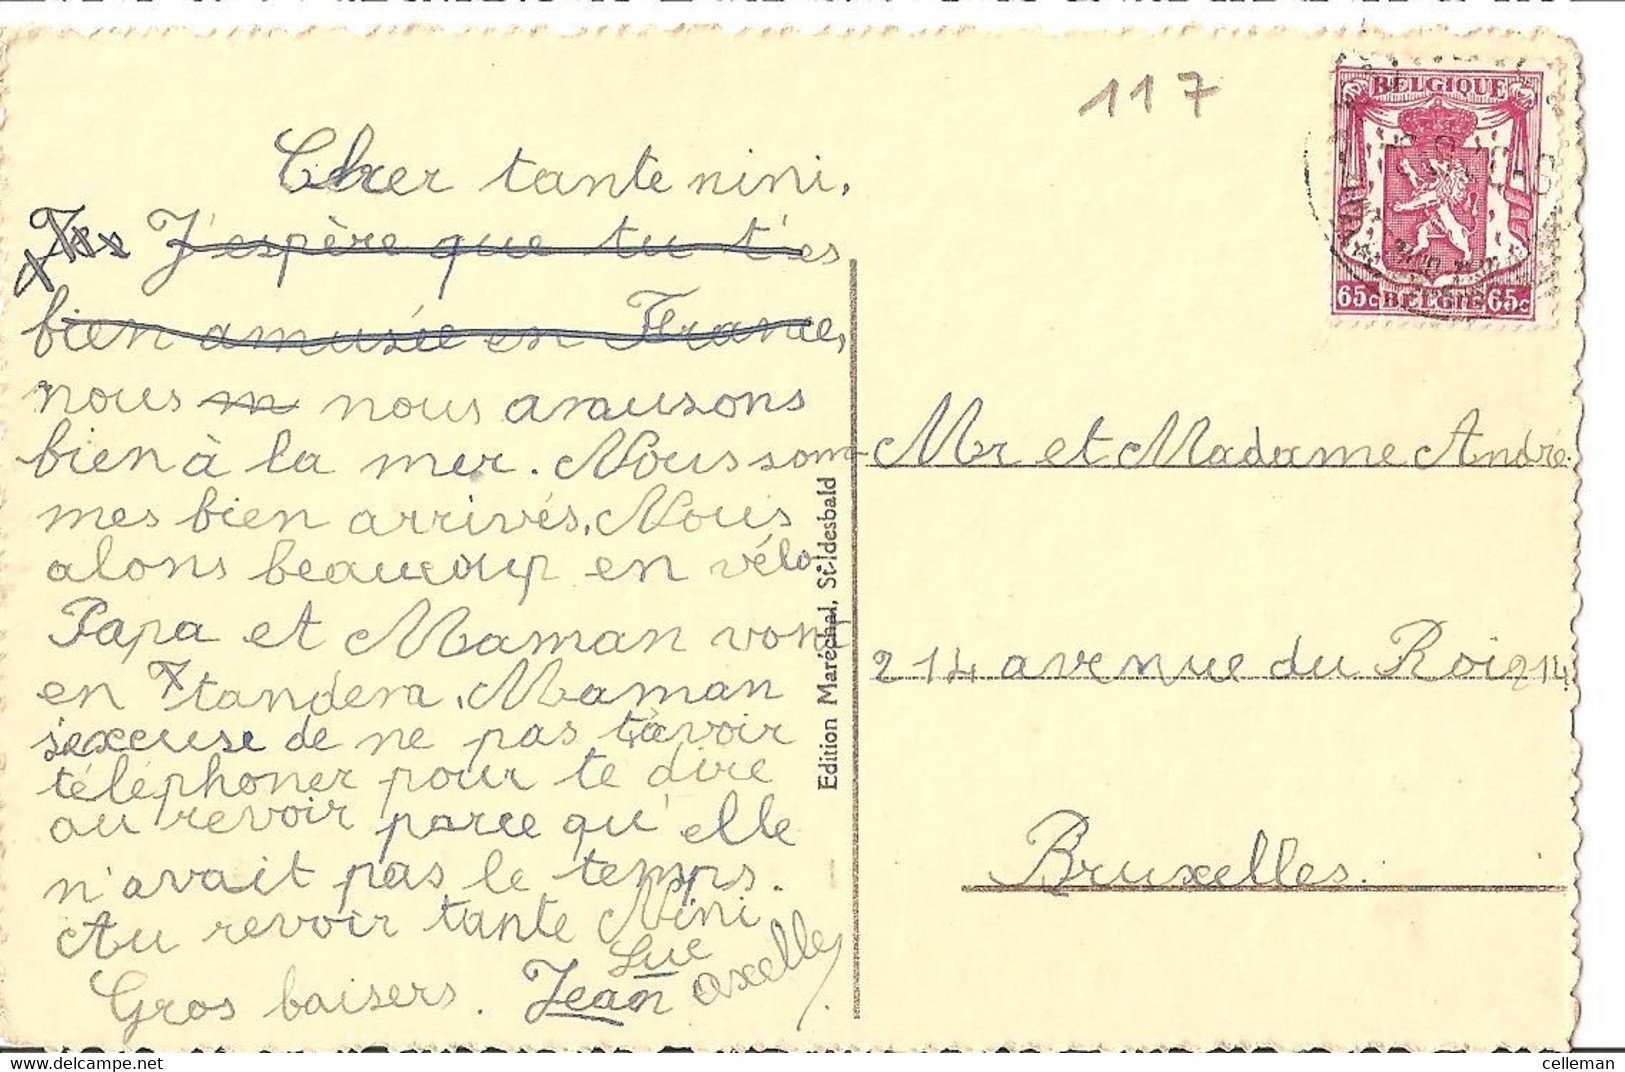 117
BELGIQUE
65c BELGIE 65c
Cher tante nini.
J'espère que tu t'es
bien amusée en France,
nous m nous amusons
bien à la mer. Nous som-
mes bien arrivés. Nous
alons beaucoup en vélo
Papa et Maman vont
en tandem. Maman
s'excuse de ne pas t'avoir
téléphoner pour te dire
au revoir parce qu'elle
n'avait pas le temps.
Au revoir tante Nini
Gros baisers. Jean
Luc
axelle
Edition Maréchal, St-Idesbald
Mr et Madame André
214 avenue du Roi 214
Bruxelles.
celleman